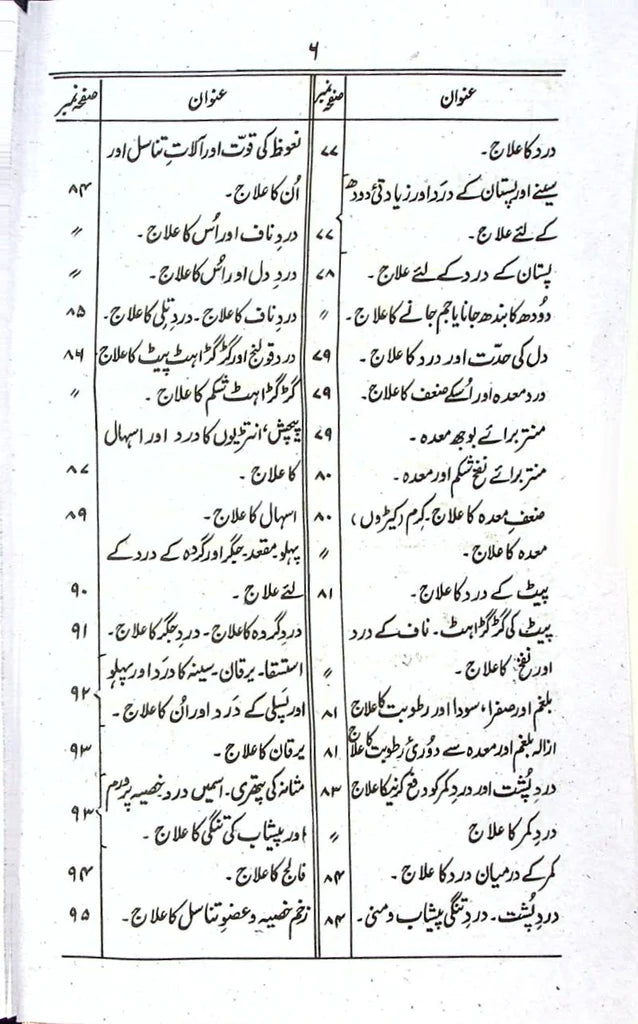 ۶
عنوان صفحہ نمبر
درد کا علاج۔ ۷۷
سینے اور پستان کے درد اور زیادتئ دودھ
کے لئے علاج۔ ۷۷
پستان کے درد کے لئے علاج۔ ۷۸
دُودھ کا بندھ جانا یا جم جانے کا علاج۔ 〃
دل کی حدّت اور درد کا علاج۔ ۷۹
درد معدہ اور اُسکے ضعف کا علاج۔ ۷۹
منتر برائے بوجھ معدہ۔ ۷۹
منتر برائے نفخ شکم اور معدہ۔ ۸۰
ضعفِ معدہ کا علاج۔ کرم (کیڑوں) ۸۰
معدہ کا علاج۔ 〃
پیٹ کے درد کا علاج۔ ۸۱
پیٹ کی گڑگڑاہٹ۔ ناف کے درد
اور نفخ کا علاج۔ 〃
بلغم اور صفرا، سودا اور رطوبت کا علاج ۸۱
ازالہ بلغم اور معدہ سے دُورئ رطوبت کا علاج ۸۱
دردِ پُشت اور دردِ کمر کو دفع کرنیکا علاج ۸۳
دردِ کمر کا علاج 〃
کمر کے درمیان درد کا علاج۔ ۸۴
دردِ پُشت۔ دردِ تنگی پیشاب و منی۔ ۸۴
عنوان صفحہ نمبر
نعوظ کی قوّت اور آلاتِ تناسل اور
اُن کا علاج۔ ۸۴
دردِ ناف اور اُس کا علاج۔ 〃
دردِ دل اور اُس کا علاج۔ 〃
دردِ ناف کا علاج۔ دردِ تِلی کا علاج۔ ۸۵
درد قولنج اور گڑگڑاہٹ پیٹ کا علاج ۸۶
گڑگڑاہٹ شکم کا علاج۔ 〃
پیچش، انتڑیوں کا درد اور اسہال
کا علاج۔ ۸۷
اسہال کا علاج۔ ۸۹
پہلو۔ مقعد۔ جگر اور گردہ کے درد کے
لئے علاج۔ ۹۰
دردِ گردہ کا علاج۔ دردِ جگر کا علاج۔ ۹۱
استسقا۔ یرقان۔ سینہ کا درد اور پہلو
اور پَسلی کے دَرد اور اُن کا علاج۔ ۹۲
یرقان کا علاج۔ ۹۳
مثانہ کی پتھری۔ اسمیں درد۔ خصیہ پر ورم
اور پیشاب کی تنگی کا علاج۔ ۹۳
فالج کا علاج۔ ۹۴
زخم خصیہ و عضوِ تناسل کا علاج۔ ۹۵